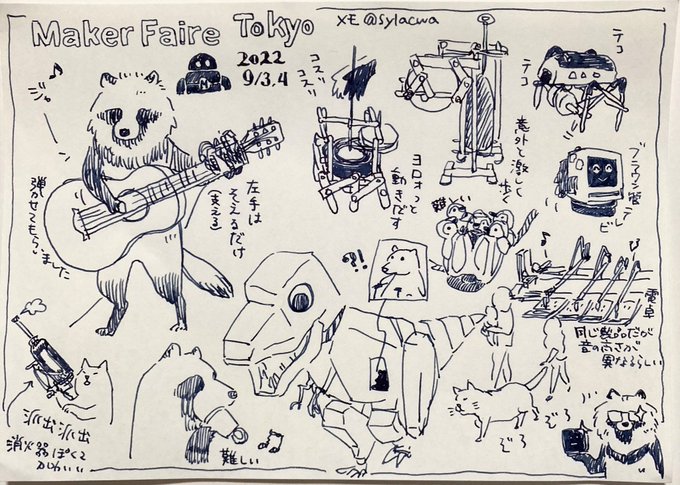 Maker Faire Tokyo
2022
9/3,4
メモ @sylacwa
ジャーン
弾かせてもらいました
左手は
そえるだけ
(支える)
コスッ
コスッ
ヨロォっと
動きだす
意外と激しく
歩く
テコ
テコ
ブラウン管
テレビ
難しい
?!
電卓
同じ製品だが
音の高さが
異なるらしい
消火器ぽくて
かわいい
難しい
ぞろ
ぞろ